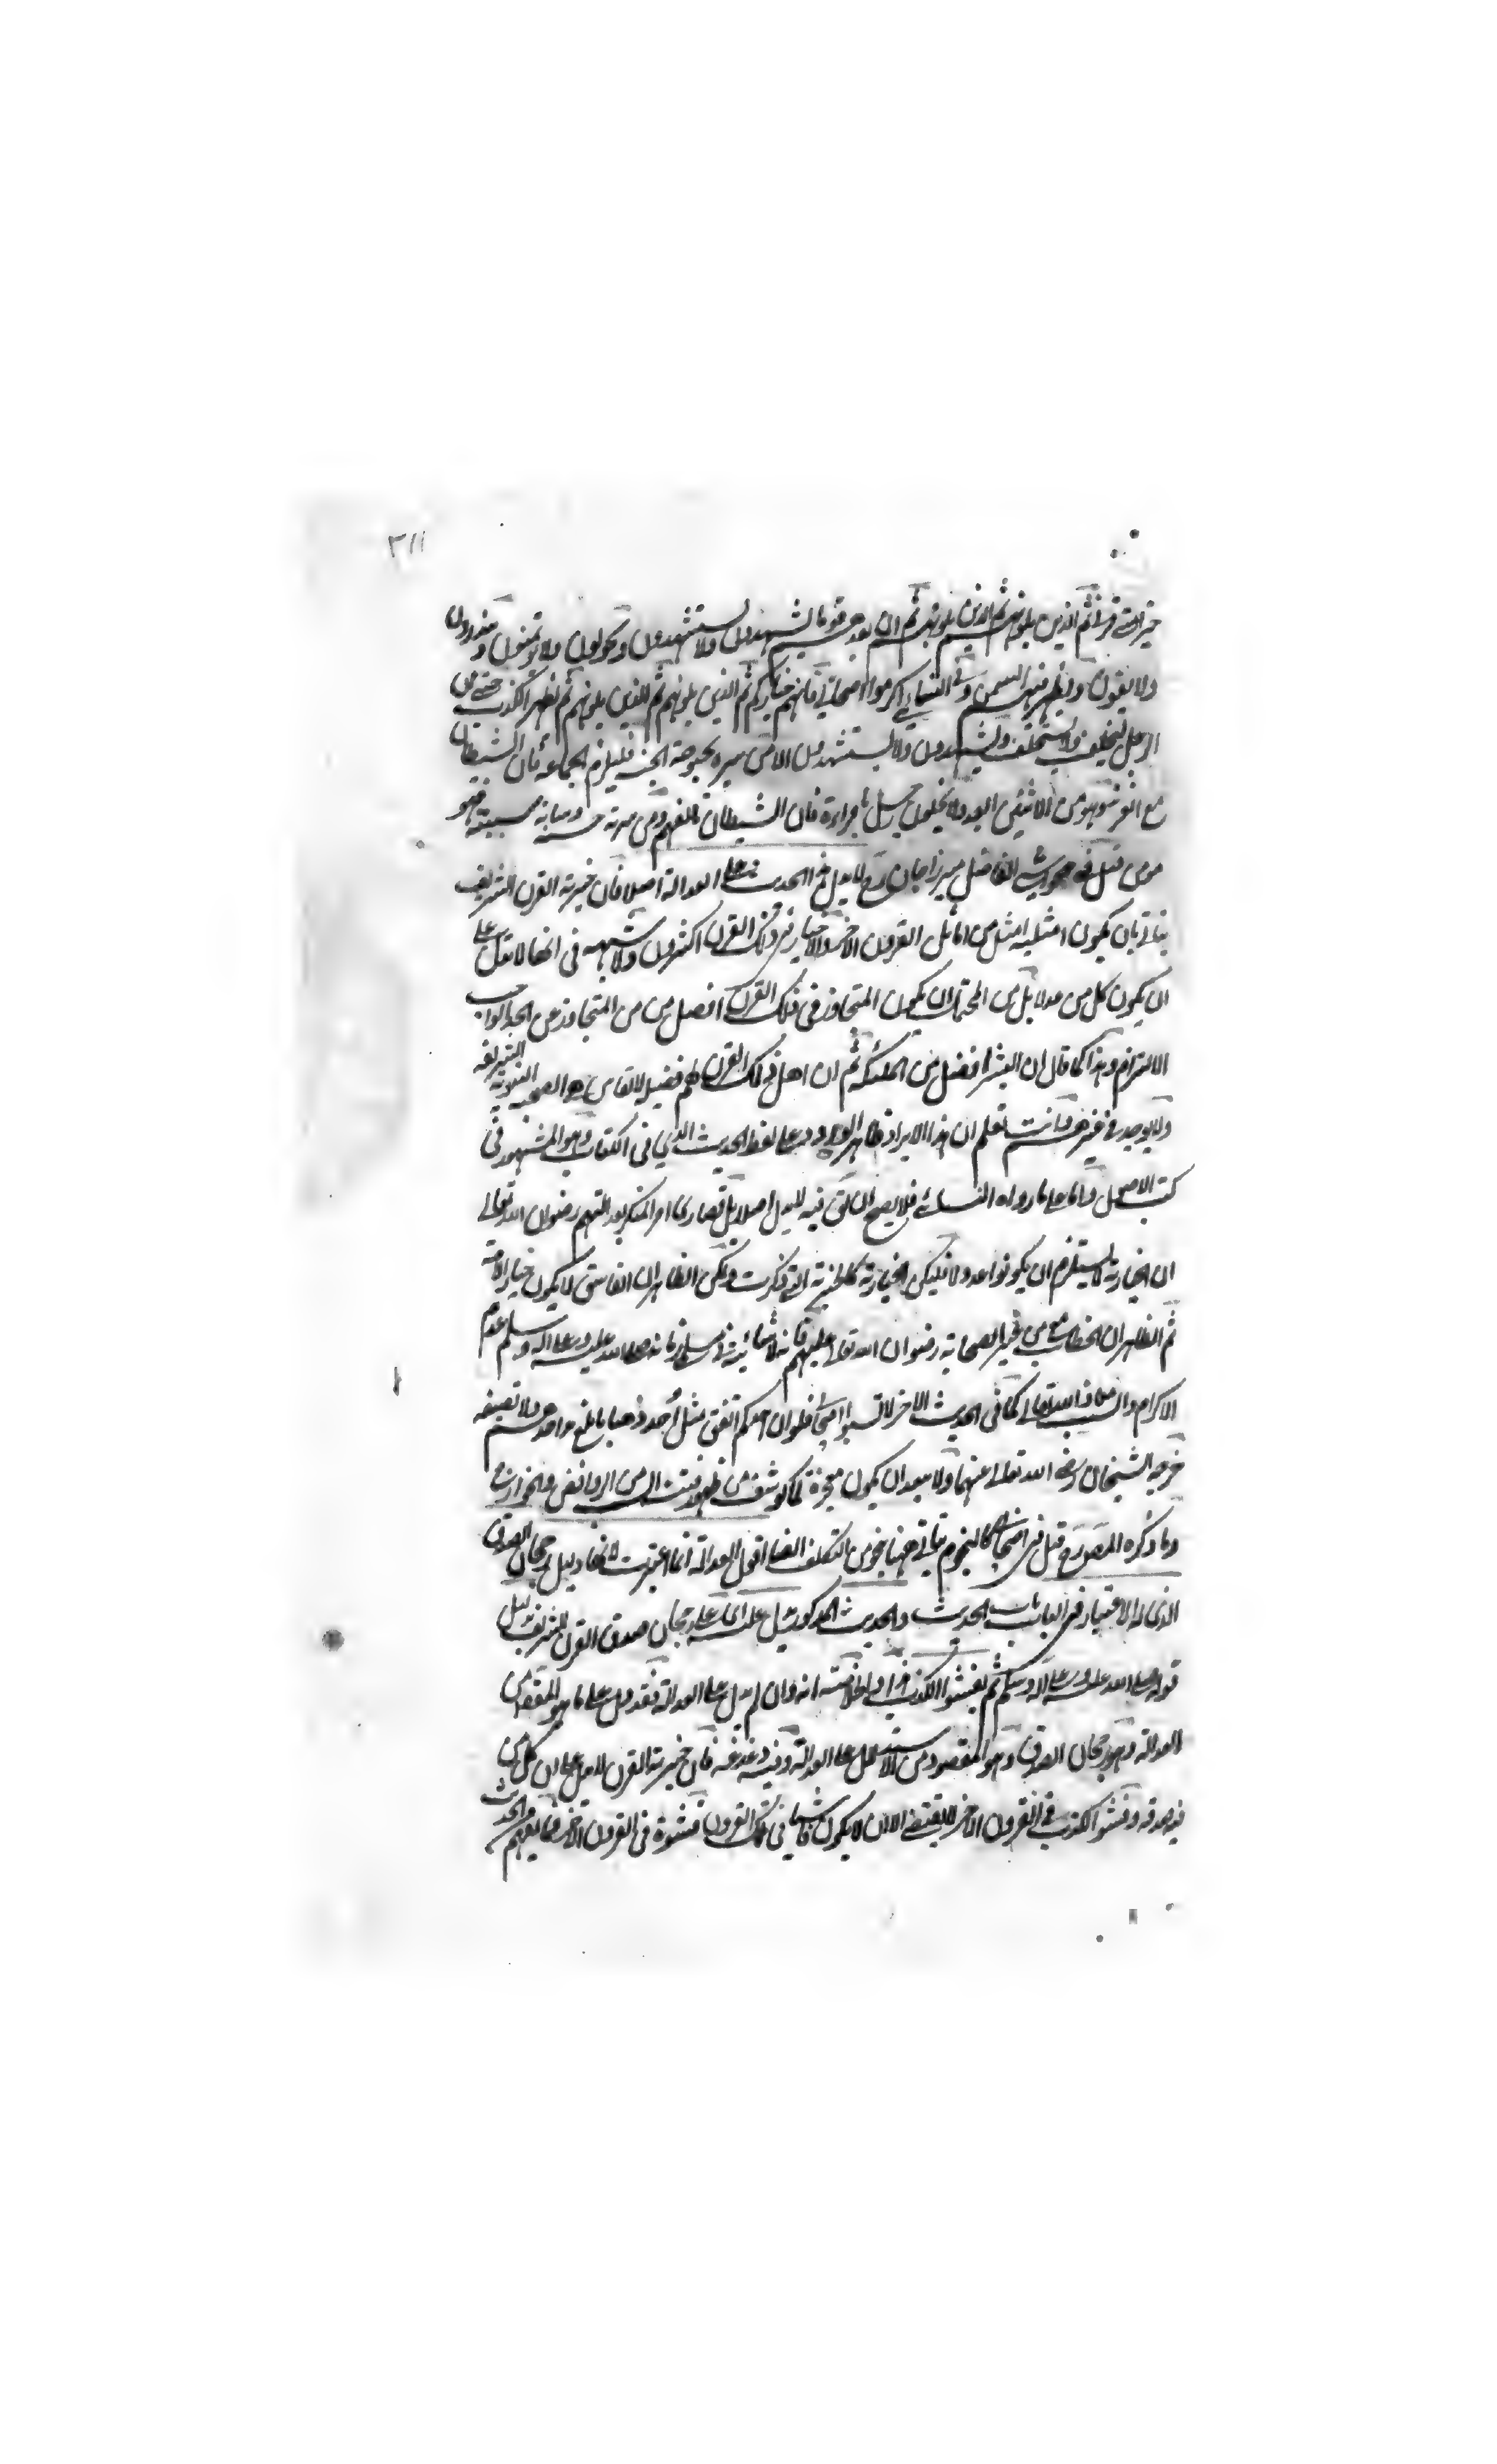 ٣١١
خير امتي قرني ثم الذين يلونهم ثم الذين يلونهم ثم ان بعدهم قوما يشهدون ولا يستشهدون ويخونون ولا يؤتمنون وينذرون
ولا يوفون ويظهر فيهم السمن وفي النسائي اكرموا اصحابي فانهم خياركم ثم الذين يلونهم ثم الذين يلونهم ثم يظهر الكذب حتى ان
الرجل ليحلف ولا يستحلف ويشهد ولا يستشهد الا من سره بحبوحة الجنة فليلزم الجماعة فان الشيطان
مع الفذ وهو من الاثنين ابعد ولا يخلون رجل بامراءة فان الشيطان ثالثهم ومن سرته حسنته وساءته سيئته فهو
مومن قيل في حواشي الفاضل ميرزا جان رح لا يدل هذا الحديث على العدالة اصلا فان خيرية القرن الشريف
يتاتى بان يكون امثليه امثل من اماثل القرون الاخر والاخيار في ذلك القرن اكثرون ولا شبهة في انها لا تدل على
ان يكون كل من عدلا بل من المحتمل ان يكون المتجاوز في ذلك القرن افضل من المتجاوز عن الحد الواجب
الالتزام وهذا كما قال ان البشر افضل من الملئكة ثم ان اهل ذلك القرن لهم فضيلة لا تقاس هو الصحبة النبوية الشريفة
ولا يوجد في غيرهم وانت تعلم ان هذا الايراد ظاهر الورود على لفظ الحديث الذي في الكتاب وهو المشهور في
كتب الاصول واما على ما رواه النسائي فلا يصح ان يقال فيه لا يدل اصلا بل قصارى امر المنكر بعدالتهم رضوان الله تعالى
ان الخيارية لا يستلزم ان يكونوا عدولا فليكن الخيارية كالخيرية التي ذكرت ولكن الظاهر ان الفاسق لا يكون خيار الامة
ثم الظاهر ان الخطاب مع من غير الصحابة رضوان الله تعالى عليهم فانه لا شائبة في زمانه صلى الله عليه وعلى اله وسلم عدم
الاكرام والسب معاذ الله تعالى كما في الحديث الاخر لا تسبوا اصحابي فلو ان احدكم انفق مثل اُحد ذهبا ما بلغ مد احدهم ولا نصيفه
خرجه الشيخان رضي الله تعالى عنهما ولا يبعد ان يكون معجزة لما كوشف من ظهور فتنة السب من الروافض والخوارج
وما ذكره المصنف رح قيل في اصحابي كالنجوم يتاتى ههنا بنحو من التكلف ايضا اقول العدالة انما اعتبرت لانها دليل رجحان الصدق
الذي له الاعتبار في باب الحديث والحديث المذكور يدل على رجحان صدق القرن الشريف بدليل
قوله صلى الله عليه وعلى اله وسلم ثم يفشوا الكذب والخلاصة انه وان لم يدل على العدالة فقد دل على ما هو المقصود من
العدالة وهو رجحان الصدق وهو المقصود من الاستدلال على العدالة وفيه دغدغة فان خيرية القرن لا يدل على ان كل من
فيه صدقه وفشو الكذب في القرون الاخر لا يقتضي الا ان لا يكون فاشيا في تلك القرون فشوه في القرون الاخر